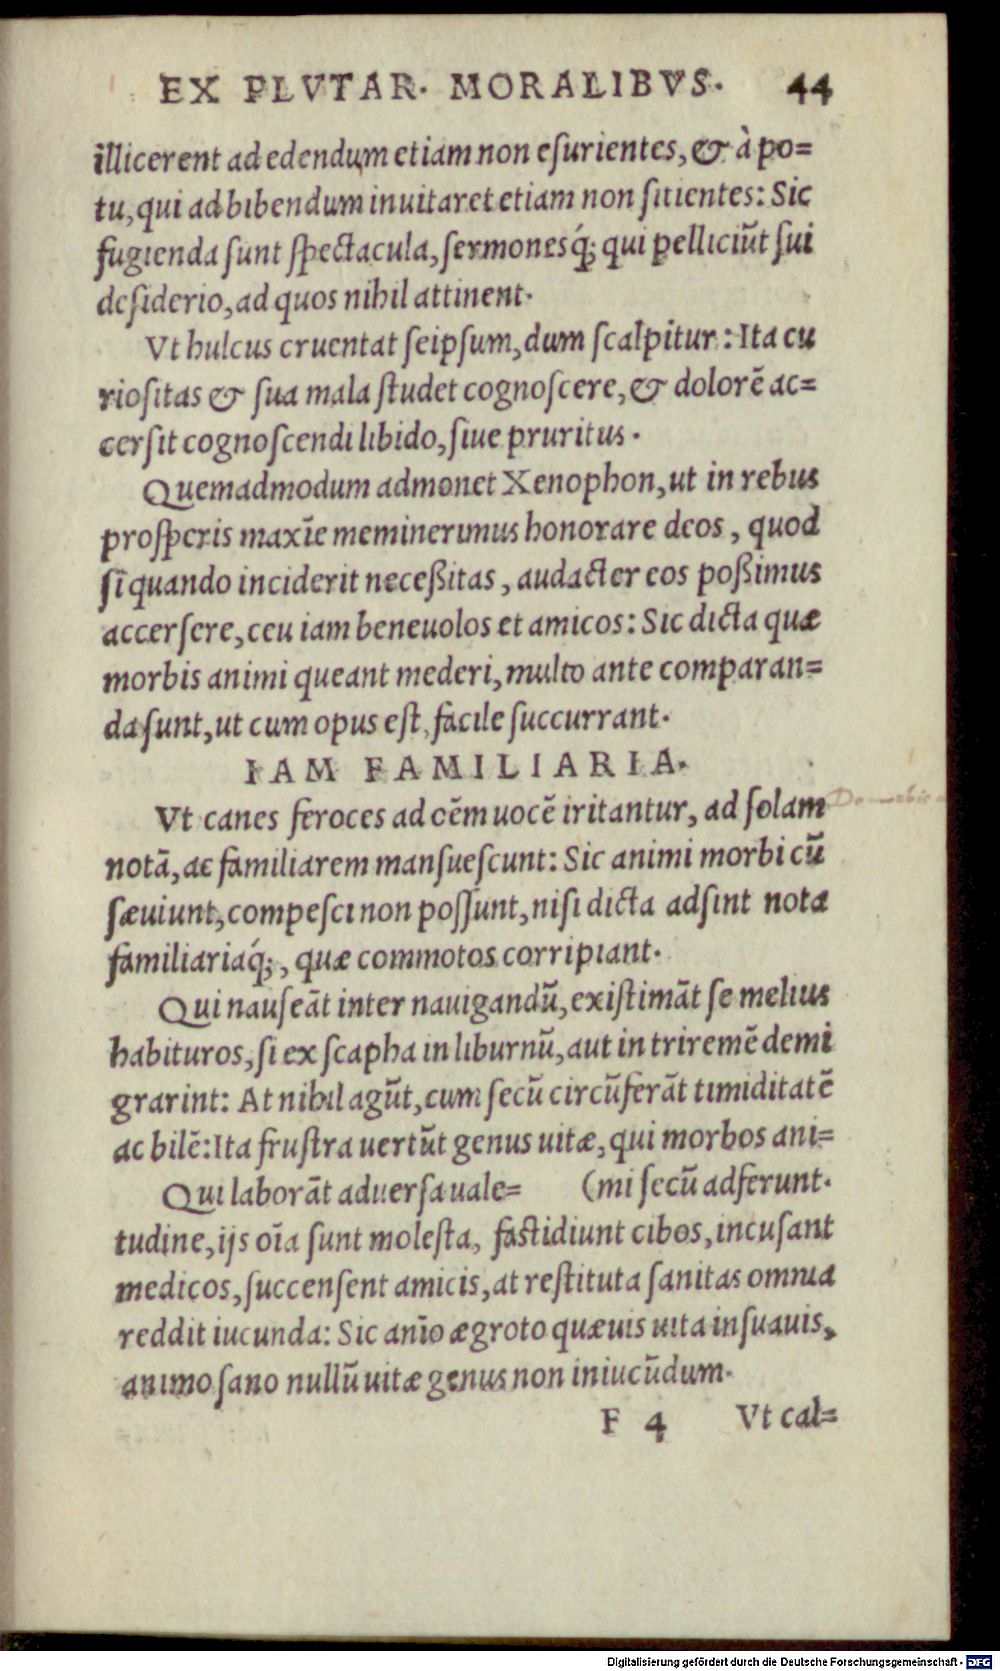 EX PLVTAR. MORALIBVS. 44
illicerent ad edendum etiam non eſurientes, & à po=
tu, qui ad bibendum inuitaret etiam non ſitientes: Sic
fugienda ſunt ſpectacula, ſermonesq́; qui pelliciūt ſui
deſiderio, ad quos nihil attinent.
Vt hulcus cruentat ſeipſum, dum ſcalpitur: Ita cu
rioſitas & ſua mala ſtudet cognoſcere, & dolorē ac=
cerſit cognoſcendi libido, ſiue pruritus.
Quemadmodum admonet Xenophon, ut in rebus
proſperis maxīe meminerimus honorare deos, quod
ſi quando inciderit neceßitas, audacter eos poßimus
accerſere, ceu iam beneuolos et amicos: Sic dicta quæ
morbis animi queant mederi, multo ante comparan=
da ſunt, ut cum opus eſt, facile ſuccurrant.
IAM FAMILIARIA.
Vt canes feroces ad oēm uocē iritantur, ad ſolam
notā, ac familiarem manſueſcunt: Sic animi morbi cū
ſæuiunt, compeſci non poſſunt, niſi dicta adſint nota
familiariaq́;, quæ commotos corripiant.
Qui nauſeāt inter nauigandū, exiſtimāt ſe melius
habituros, ſi ex ſcapha in liburnū, aut in triremē demi
grarint: At nihil agūt, cum ſecū circūferāt timiditatē
ac bilē: Ita fruſtra uertūt genus uitæ, qui morbos ani=
Qui laborāt aduerſa uale= (mi ſecū adferunt.
tudine, ijs oīa ſunt moleſta, faſtidiunt cibos, incuſant
medicos, ſuccenſent amicis, at reſtituta ſanitas omnia
reddit iucunda: Sic anīo ægroto quæuis uita inſuauis,
animo ſano nullū uitæ genus non iniucūdum.
F 4 Vt cal=
Digitalisierung gefördert durch die Deutsche Forschungsgemeinschaft - DFG